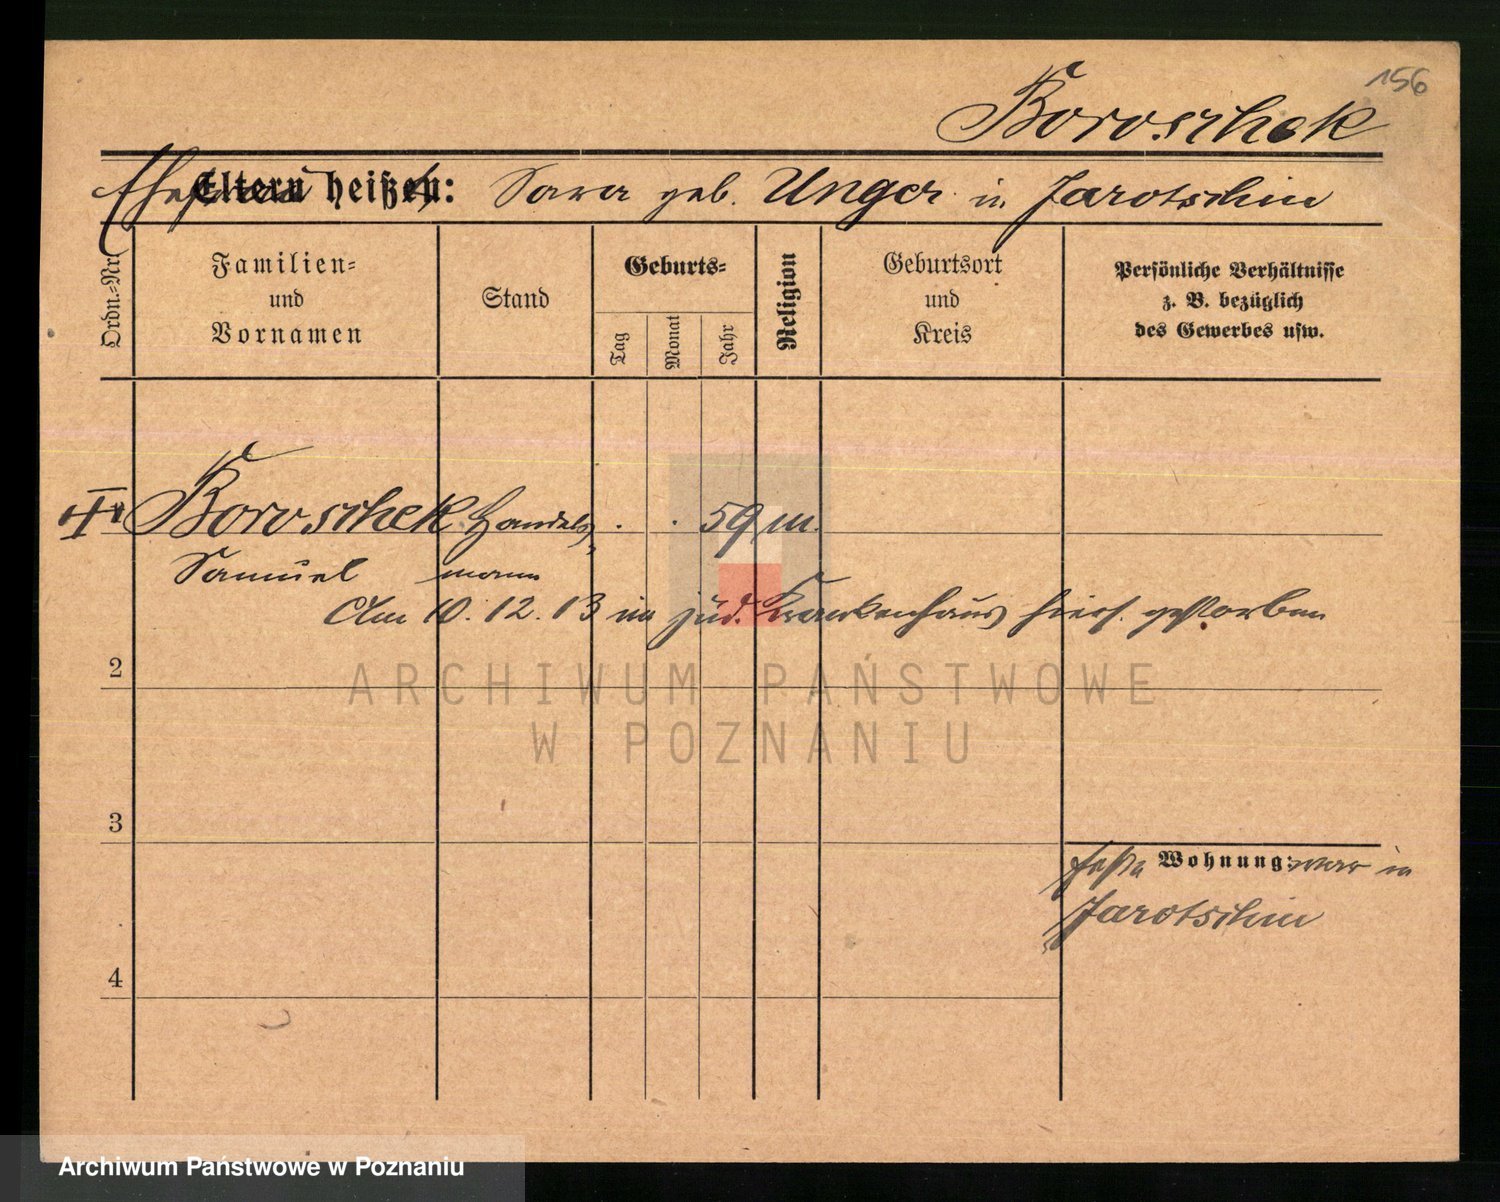 156
Boroschek
Ehefrau Eltern heißen: Sara geb. Unger in Jarotschin
Ordn.-Nr.
Familien-
und
Vornamen
Stand
Geburts-
Tag
Monat
Jahr
Religion
Geburtsort
und
Kreis
Persönliche Verhältnisse
z. B. bezüglich
des Gewerbes usw.
Boroschek Handels- . . 59 m.
Samuel mann
Am 10.12.13 im jüd. Krankenhaus hies. gestorben
2
3
4
feste Wohnung: war in
Jarotschin
ARCHIWUM PAŃSTWOWE
W POZNANIU
Archiwum Państwowe w Poznaniu